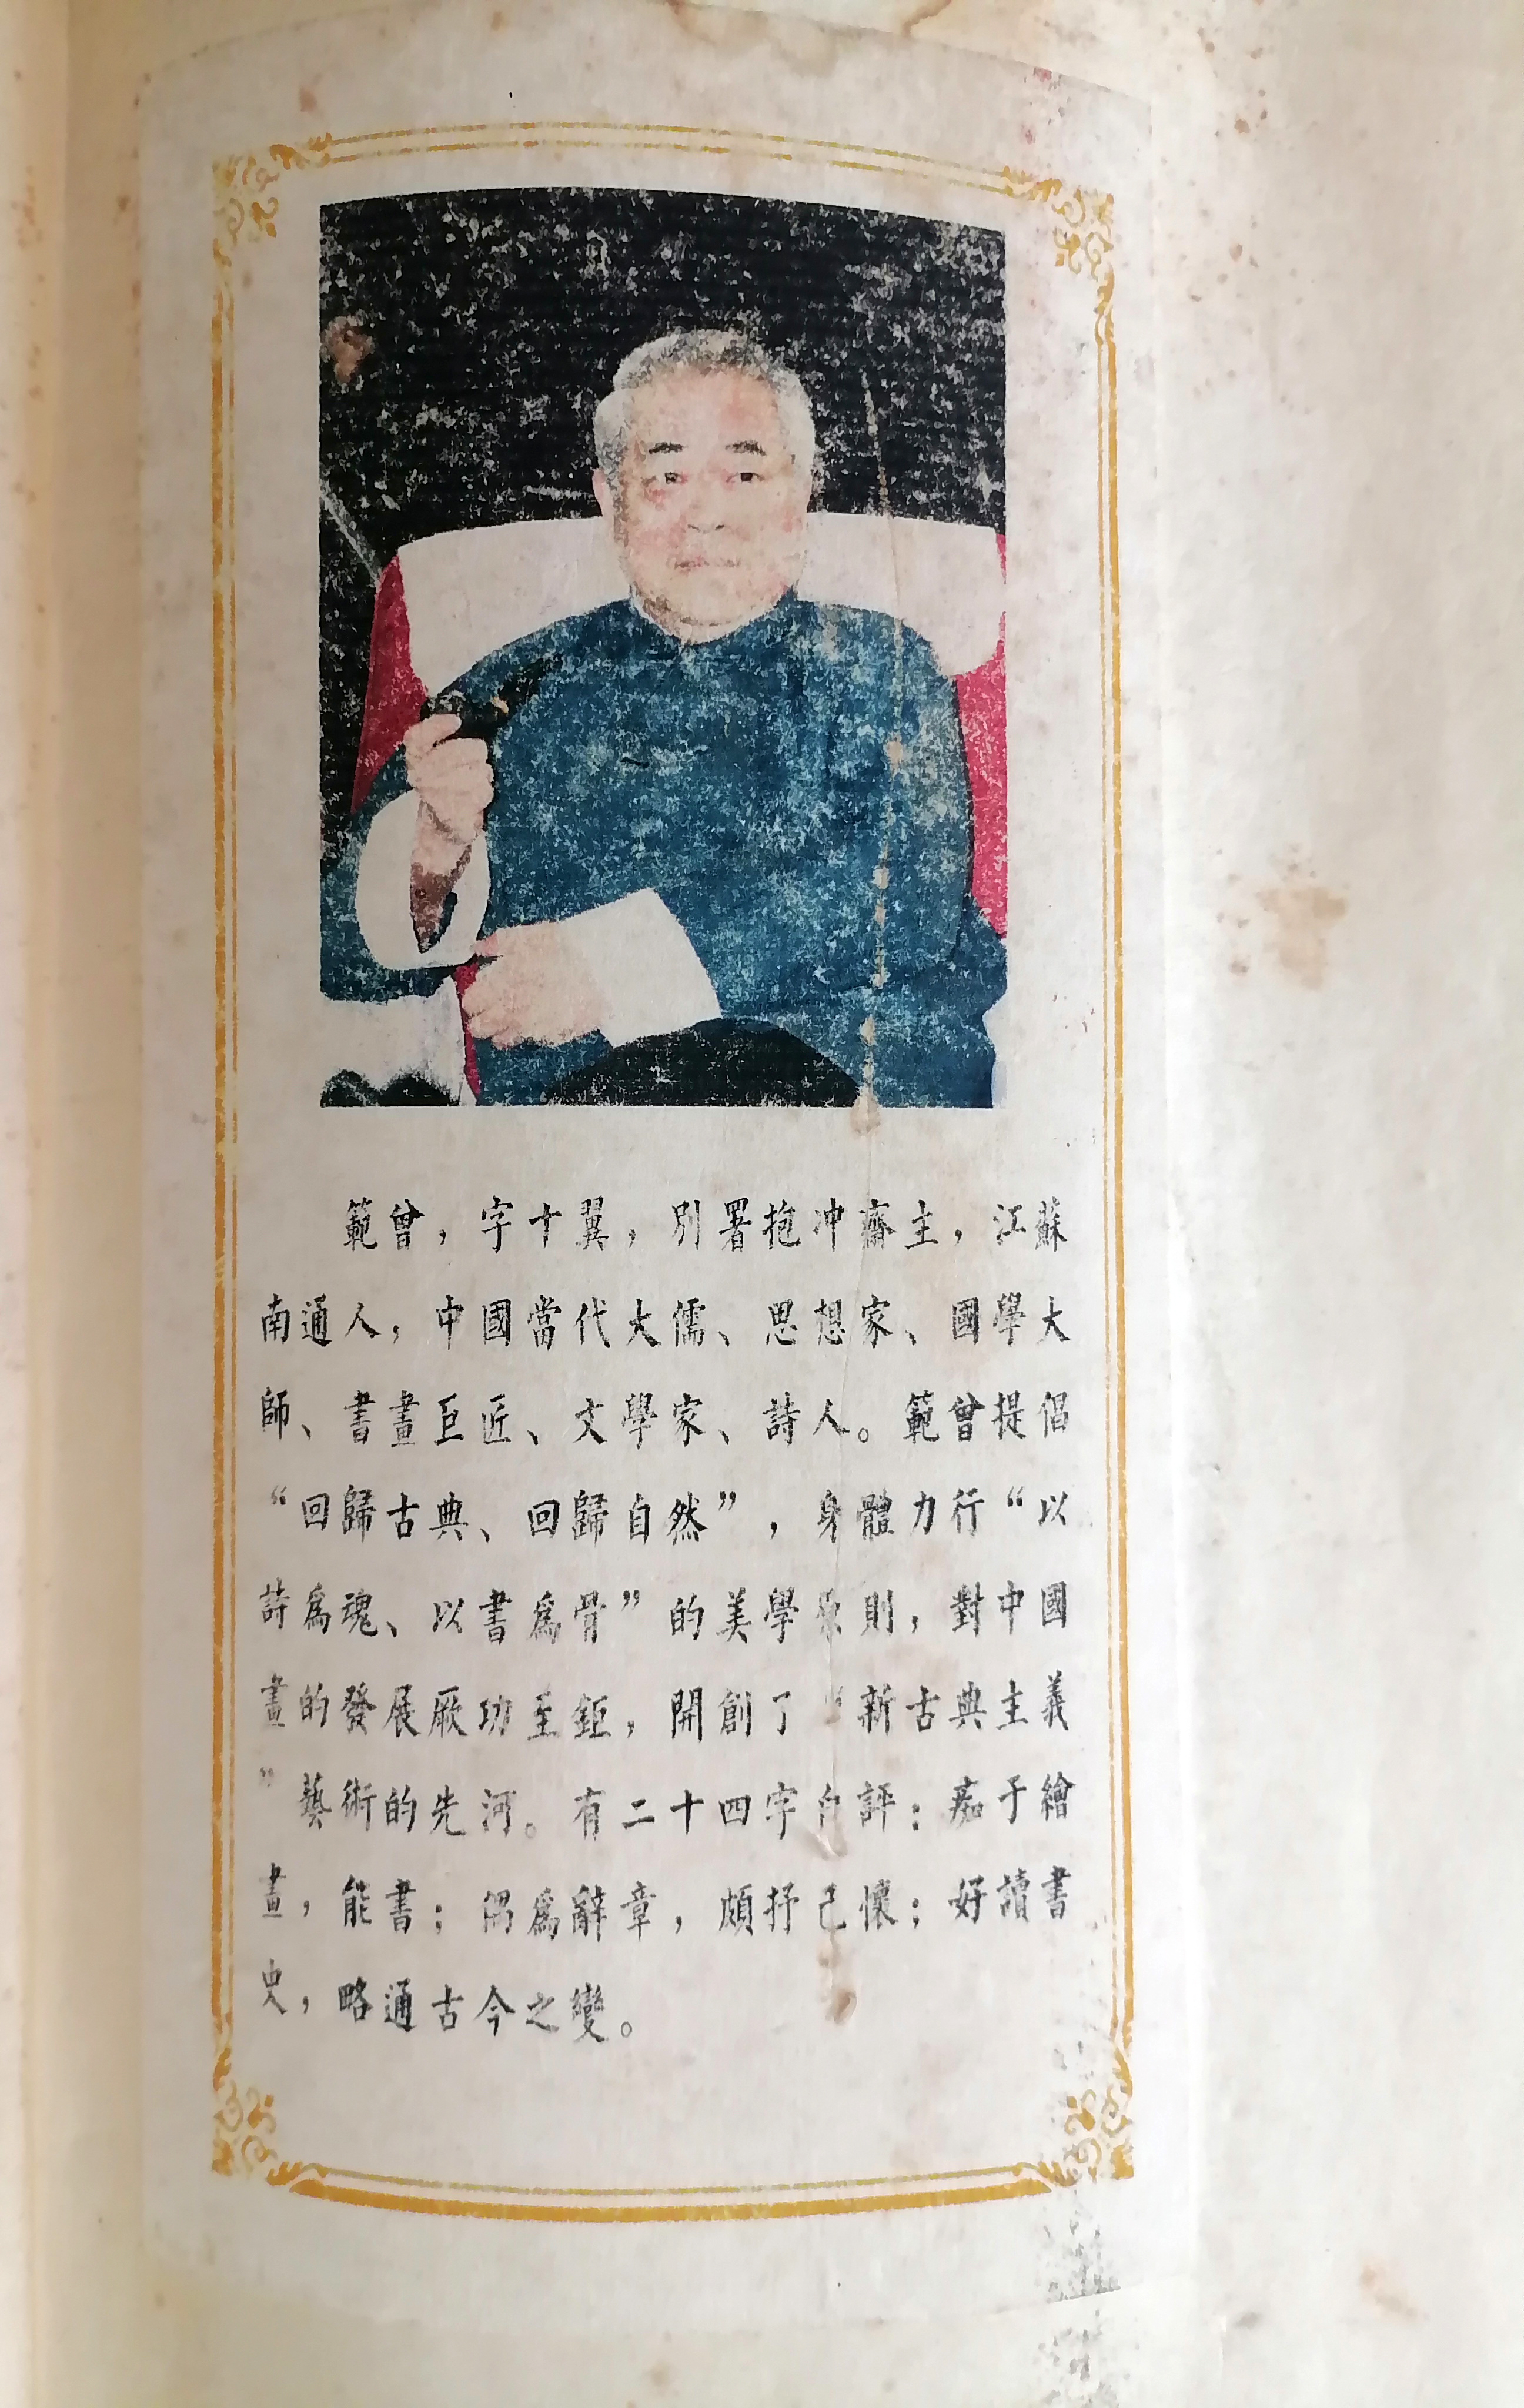 範曾，字十翼，別署抱冲齋主，江蘇
南通人，中國當代大儒、思想家、國學大
師、書畫巨匠、文學家、詩人。範曾提倡
“回歸古典、回歸自然”，身體力行“以
詩爲魂、以書爲骨”的美學原則，對中國
畫的發展厥功至鉅，開創了“新古典主義
”藝術的先河。有二十四字自評：痴于繪
畫，能書；偶爲辭章，頗抒己懷；好讀書
史，略通古今之變。